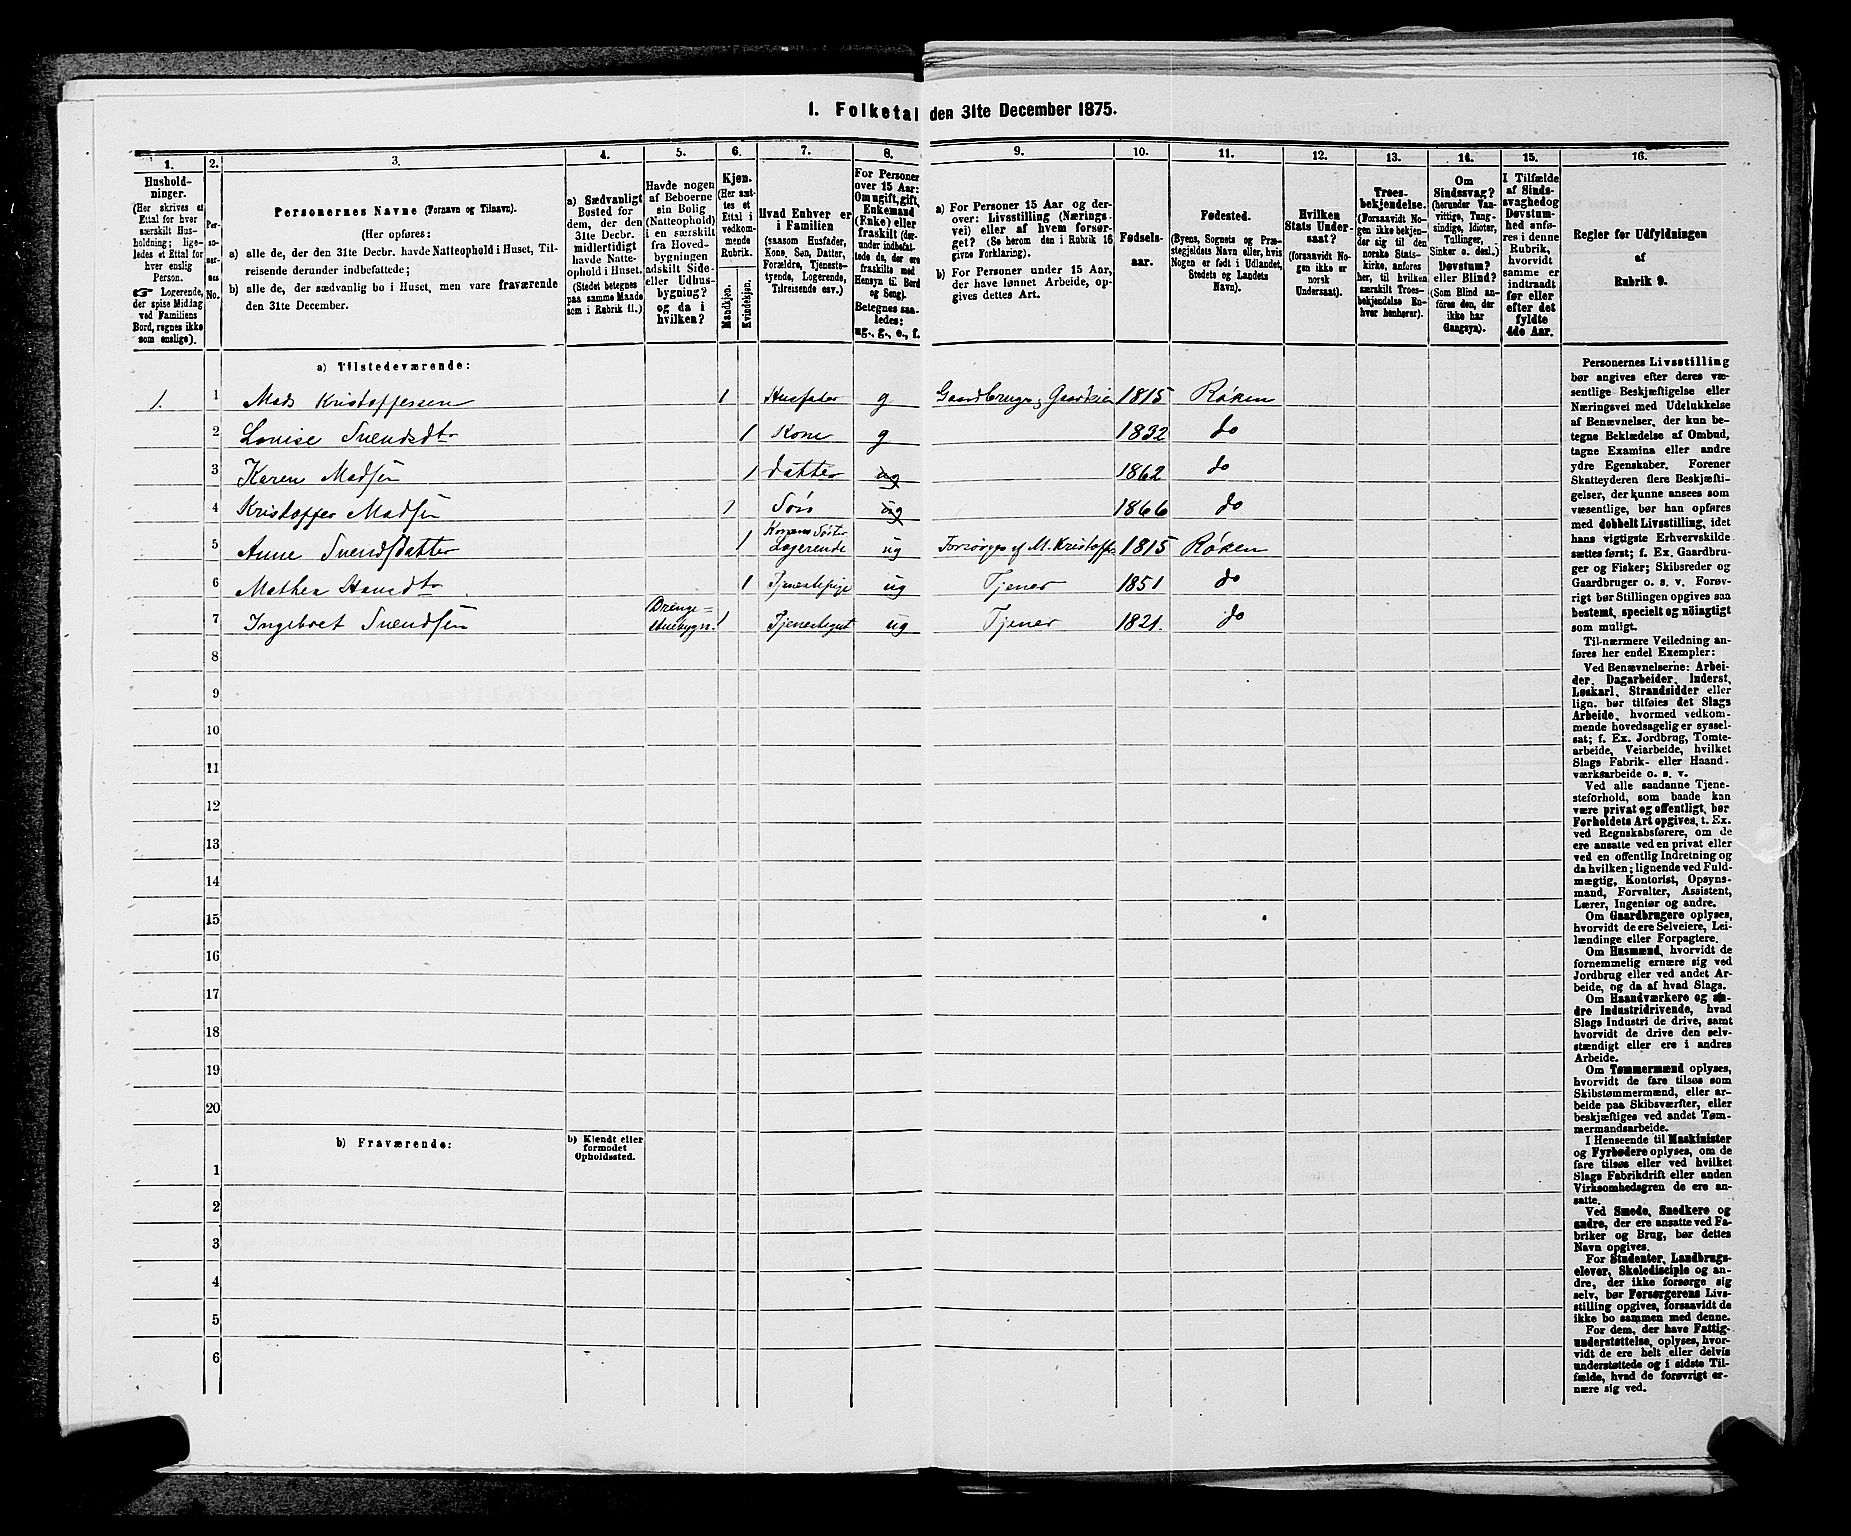 1. Folketal den 31te December 1875.
1.
2.
3.
4.
5.
6.
7.
8.
9.
10.
11.
12.
13.
14.
15.
16.
Hushold-
ninger.
(Her skrives et
Ettal for hver
særskilt Hus-
holdning; lige-
ledes et Ettal for
hver enslig
Person.
☞ Logerende,
der spise Middag
ved Familiens
Bord, regnes ikke
som enslige).
Per-
so-
ner-
nes
No.
Personernes Navne (Fornavn og Tilnavn).
(Her opføres:
a) alle de, der den 31te Decbr. havde Natteophold i Huset, Til-
reisende derunder indbefattede;
b) alle de, der sædvanlig bo i Huset, men vare fraværende
den 31te December.
a) Sædvanligt
Bosted for
dem, der den
31te Decbr.
midlertidigt
havde Natte-
ophold i Huset.
(Stedet betegnes
paa samme Maade
som i Rubrik 11.)
Havde nogen
af Beboerne
sin Bolig
(Natteophold)
i en særskilt
fra Hoved-
bygningen
adskilt Side-
eller Udhus-
bygning?
og da i
hvilken?
Kjøn.
(Her sæt-
tes et
Ettal i
vedkom-
mende
Rubrik.
Mandkjøn.
Kvindekjøn.
Hvad Enhver er
i Familien
(saasom Husfader,
Kone, Søn, Datter,
Forældre, Tjeneste-
tyende, Logerende,
Tilreisende osv.)
For Personer
over 15 Aar:
Om ugift, gift,
Enkemand
(Enke) eller
fraskilt (der-
under indbefat-
tede de, der ere
fraskilte med
Hensyn til Bord
og Seng).
Betegnes saa-
ledes:
ug., g., e., f.
a) For Personer 15 Aar og der-
over: Livsstilling (Nærings-
vei) eller af hvem forsør-
get? (Se herom den i Rubrik 16
givne Forklaring).
b) For Personer under 15 Aar,
der have lønnet Arbeide, op-
gives dettes Art.
Fødsels-
aar.
Fødested.
(Byens, Sognets og Præ-
stegjeldets Navn eller, hvis
Nogen er født i Udlandet,
Stedets og Landets
Navn).
Hvilken
Stats Under-
saat?
(forsaavidt No-
gen ikke er
norsk
Undersaat).
Troes-
bekjendelse.
(Forsaavidt No-
gen ikke bekjen-
der sig til den
norske Stats-
kirke, anføres
her, til hvilken
særskilt Troes-
bekjendelse En-
hver henhører).
Om
Sindssvag?
(herunder Van-
vittige, Tung-
sindige, Idioter,
Tullinger,
Sinker o. desl.)
Døvstum?
eller Blind?
(Som Blind an-
føres den, der
ikke har
Gangsyn).
I Tilfælde
af Sinds-
svaghed og
Døvstum-
hed anfø-
res i denne
Rubrik,
hvorvidt
samme er
indtraadt
før eller
efter det
fyldte
4de Aar.
Regler for Udfyldningen
af
Rubrik 9.
a) Tilstedeværende:
1. 1 Mads Kristoffersen 1 Husfader g Gaardbruger, Gaardeier 1815 Røken
2 Lovise Svendsdtr 1 Kone g 1832 do
3 Karen Madsen 1 datter ug 1862 do
4 Kristoffer Madsen 1 Søn ug 1866 do
5 Anne Svendsdatter 1 Konens Søster Logerende ug Forsørges af M. Kristoffs. 1815 Røken
6 Mathea Hansdtr 1 Tjenestepige ug Tjener 1851 do
7 Ingebret Svendsen Drenge=stuebygn. 1 Tjenestegut ug Tjener 1821. do
8
9
10
11
12
13
14
15
16
17
18
19
20
b) Fraværende:
b) Kjendt eller
formodet
Opholdssted.
1
2
3
4
5
6
Personernes Livsstilling
bør angives efter deres væ-
sentlige Beskjæftigelse eller
Næringsvei med Udelukkelse
af Benævnelser, der kun be-
tegne Beklædelse af Ombud,
tagne Examina eller andre
ydre Egenskaber. Forener
Skatteyderen flere Beskjæfti-
gelser, der kunne ansees som
væsentlige, bør han opføres
med dobbelt Livsstilling, idet
hans vigtigste Erhvervskilde
sættes først; f. Ex. Gaardbru-
ger og Fisker; Skibsreder og
Gaardbruger o. s. v. Forøv-
rigt bør Stillingen opgives saa
bestemt, specielt og nöiagtigt
som muligt.
Til nærmere Veiledning an-
føres her endel Exempler:
Ved Benævnelserne: Arbei-
der, Dagarbeider, Inderst,
Løskarl, Strandsidder eller
lign. bør tilføies det Slags
Arbeide, hvormed vedkom-
mende hovedsagelig er syssel-
sat; f. Ex. Jordbrug, Tomte-
arbeide, Veiarbeide, hvilket
Slags Fabrik- eller Haand-
værksarbeide o. s. v.
Ved alle saadanne Tjene-
steforhold, som baade kan
være privat og offentligt, bør
Forholdets Art opgives, t. Ex.
ved Regnskabsførere, om de
ere ansatte ved en privat eller
ved en offentlig Indretning og
da hvilken; lignende ved Fuld-
mægtig, Kontorist, Opsyns-
mand, Forvalter, Assistent,
Lærer, Ingeniør og andre.
Om Gaardbrugere oplyses,
hvorvidt de ere Selveiere, Lei-
lændinge eller Forpagtere.
Om Husmænd, hvorvidt de
fornemmelig ernære sig ved
Jordbrug eller ved andet Ar-
beide, og da af hvad Slags.
Om Haandværkere og an-
dre Industridrivende, hvad
Slags Industri de drive, samt
hvorvidt de drive den selv-
stændigt eller ere i andres
Arbeide.
Om Tømmermænd oplyses,
hvorvidt de fare tilsøs som
Skibstømmermænd, eller ar-
beide paa Skibsværfter, eller
beskjæftiges ved andet Tøm-
mermandsarbeide.
I Henseende til Maskinister
og Fyrbødere oplyses, om de
fare tilsøs eller ved hvilket
Slags Fabrikdrift eller anden
Virksomhedsgren de ere an-
satte.
Ved Smede, Snedkere og
andre, der ere ansatte ved Fa-
briker og Brug, bør dettes
Navn opgives.
For Studenter, Landbrugs-
elever, Skoledisciple og an-
dre, der ikke forsørge sig
selv, bør Forsørgerens Livs-
stilling opgives, forsaavidt de
ikke bo sammen med denne.
For dem, der have Fattig-
understøttelse, oplyses, hvor-
vidt de ere helt eller delvis
understøttede og i sidste Til-
fælde, hvad de forøvrigt er-
nære sig ved.